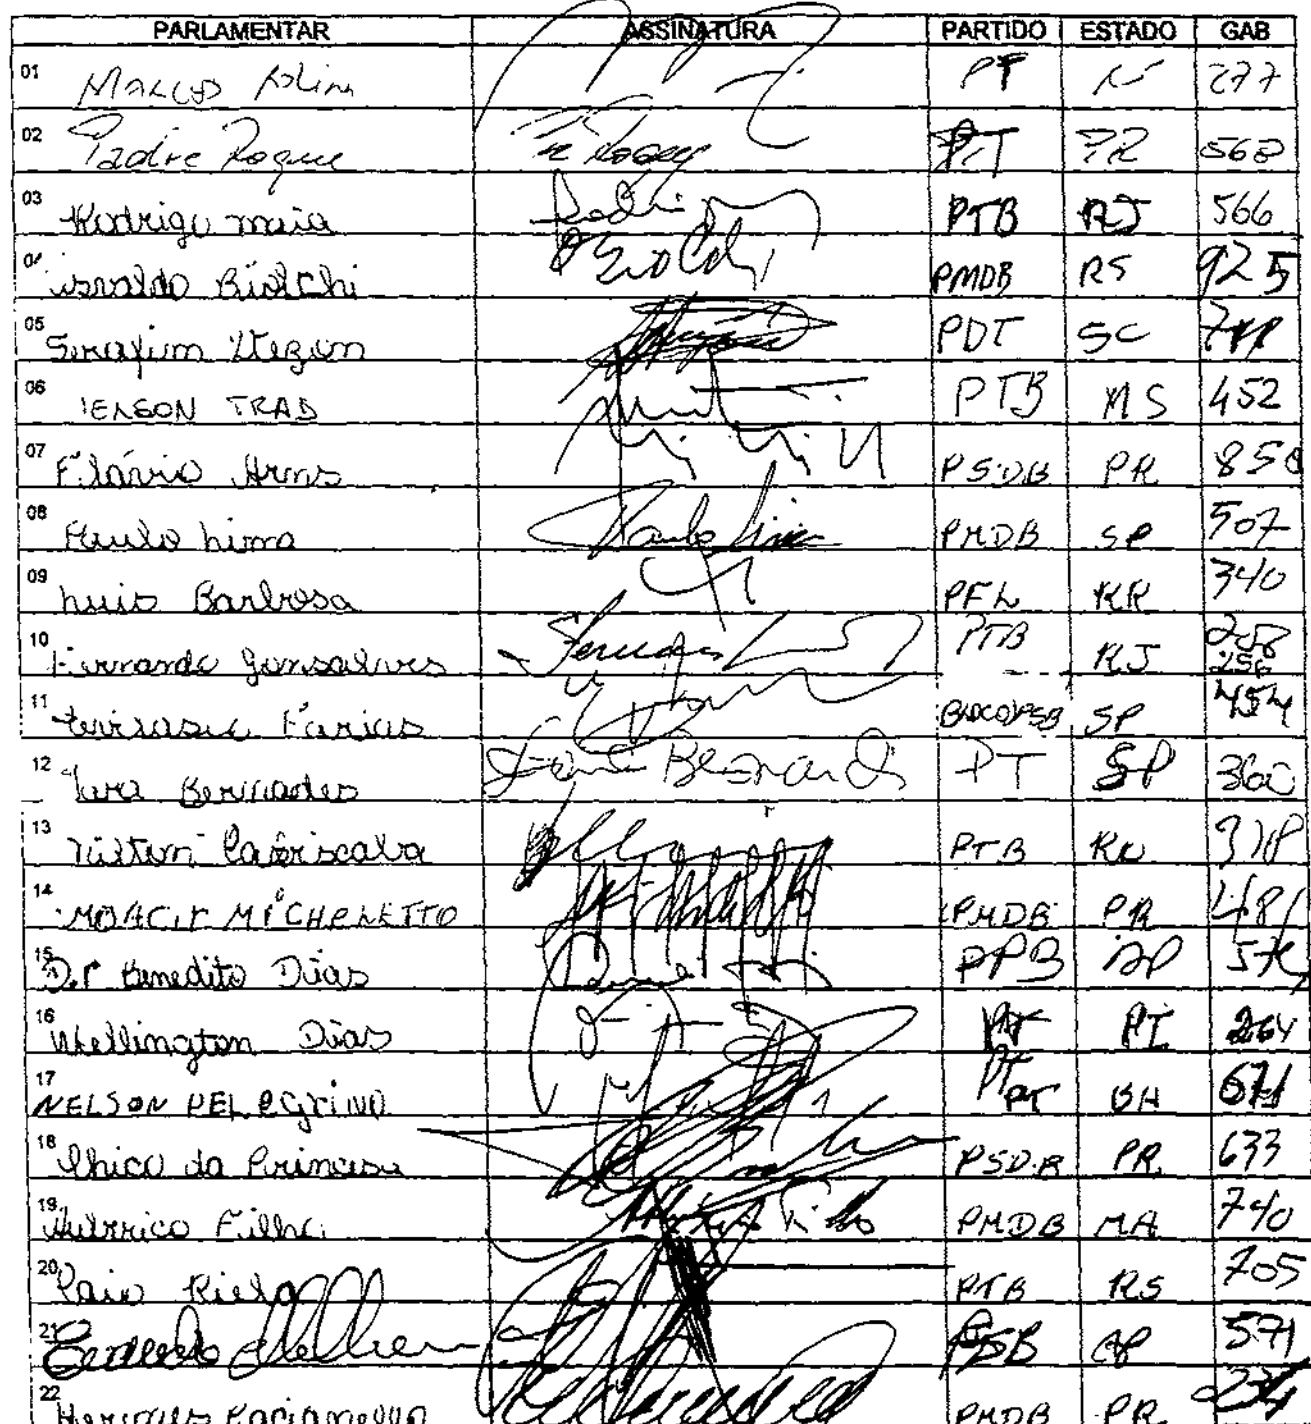 PARLAMENTAR ASSINATURA PARTIDO ESTADO GAB
01 Marcos Rolim PT RS 277
02 Padre Roque Pe Roque PT PR 562
03 Rodrigo maia Rodrigo PTB RJ 566
04 Osvaldo Biolchi OBiolchi PMDB RS 925
05 Serafim Venzon PDT SC
06 NELSON TRAD PTB MS 452
07 Flávio Arns PSDB PR 850
08 Paulo Lima Paulo Lima PMDB SP 507
09 Luis Barbosa PFL RR 340
10 Fernando Gonsalves Fernando PTB RJ 258 256
11 Evilasio Farias BLOCO/PSB SP 454
12 Iara Bernardes Iara Bernardi PT SP 360
13 PTB 318
14 MOACIR MICHELETTO PMDB PR 481
15 Dr Benedito Dias PPB AP
16 Wellington Dias PT PI 264
17 NELSON PELEGRINO PT PT BA 671
18 Chico da Princesa PSDB PR 633
19 Albérico Filho PMDB MA 740
20 Caio Riela PTB RS 705
21 PSB AP 571
22 Hermes Parcianello PMDB PR 234